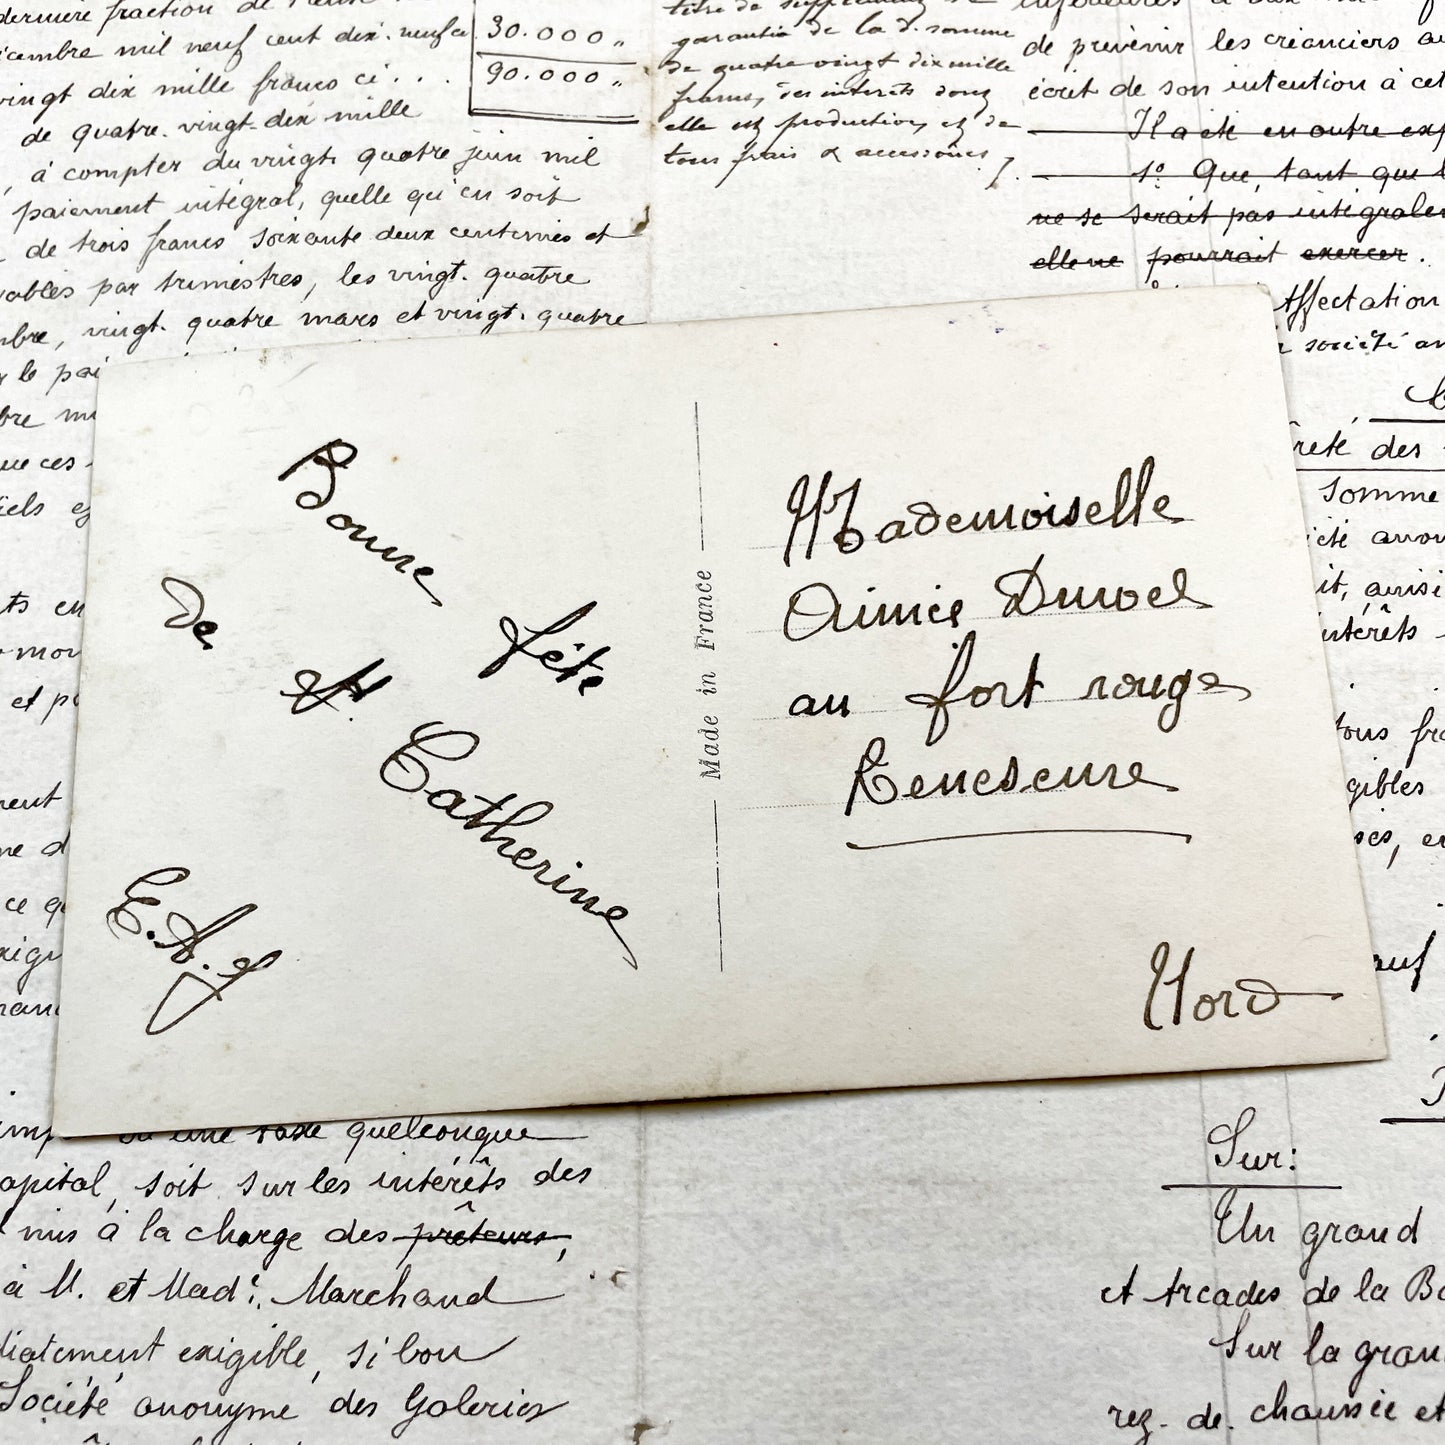 dernière fraction de
décembre mil neuf cent dix-neuf ci
30.000 "
90.000 "
vingt dix mille francs ci . . .
de quatre-vingt-dix mille
, à compter du vingt quatre juin mil
paiement intégral, quelle qu'en soit
de trois francs soixante deux centimes et
par trimestres, les vingt-quatre
vingt-quatre mars et vingt-quatre
r le pai
bre mi
que ces
iels
ts en
et p
ce q
titre de
garantie de la d. somme
de quatre vingt dix mille
francs, des intérêts dont
elle est productive, et de
tous frais & accessoires,
de prévenir les créanciers
écrit de son intention à cet
Il a été en outre exp
1° Que, tant que
ne se serait pas intégralem
elle ne pourrait exercer.
Affectation
société an
reté des
Somme
ciété anon
it, ainsi
intérêts
tous fra
gibles
ses, e
auf
Bonne fête
de St Catherine
E.A.J
Made in France
Mademoiselle
Aimée Duvoel
au fort rouge
Renescure
Nord
ou une taxe quelconque
capital, soit sur les intérêts des
mis à la charge des prêteurs,
à M. et Mad. Marchand
diatement exigible, si bon
Société anonyme des Galeries
Sur:
Un grand
et Arcades de la Bo
Sur la gran
rez-de-chaussée et